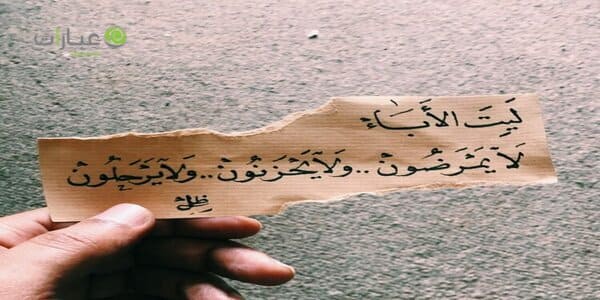 عبارات
لَيتَ الأَبَاءْ
لاَ يَمْرَضُونْ .. ولاَ يَحْزَنُونْ .. ولاَ يَرْحَلُونْ
ظِلْ